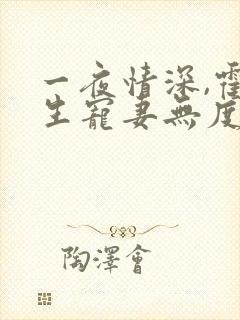 一夜情深,霍
生寵妻無度
陶澤會